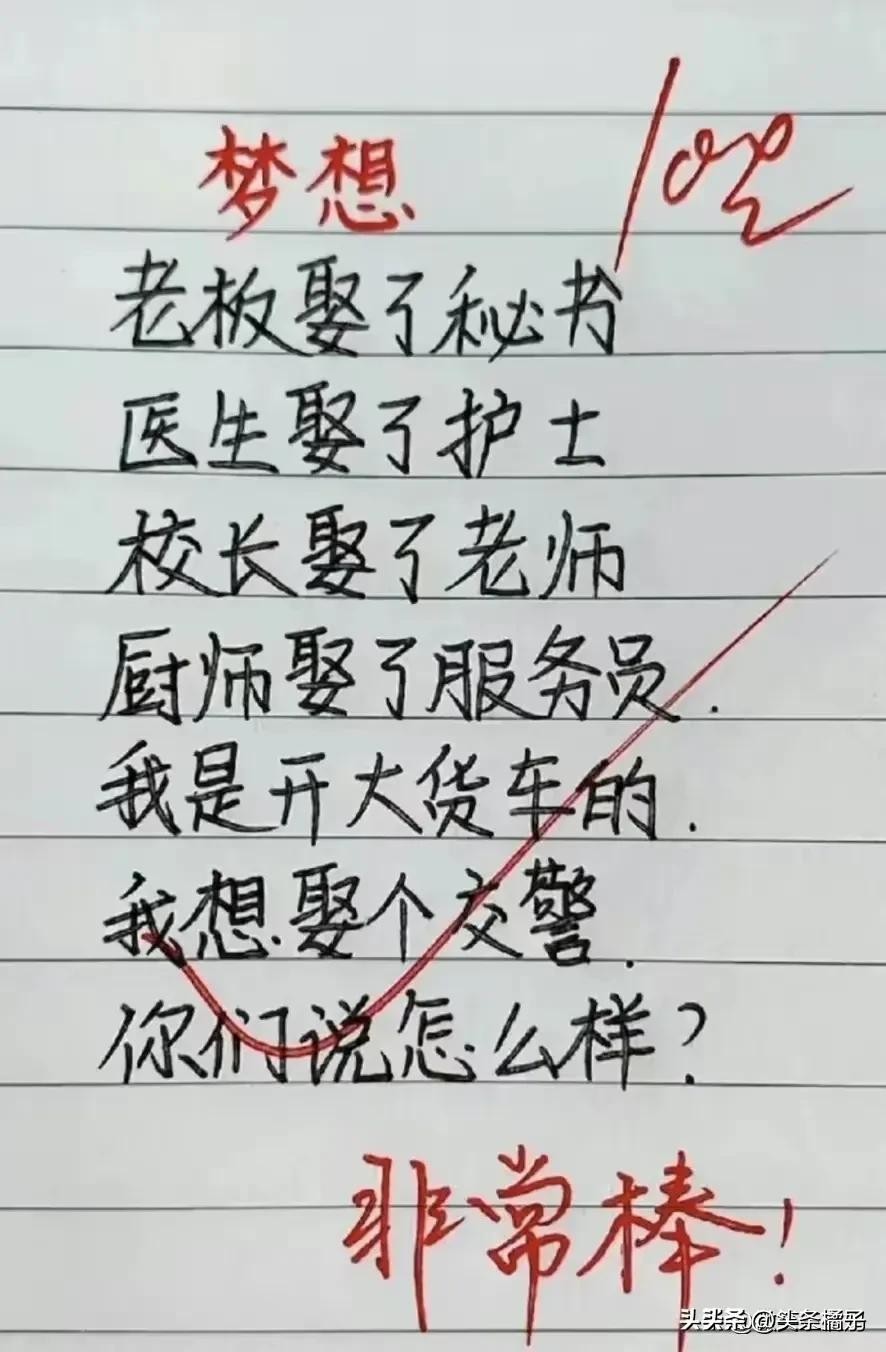 梦想
老板娶了秘书
医生娶了护士
校长娶了老师
厨师娶了服务员.
我是开大货车的.
我想娶个交警.
你们说怎么样?
非常棒!
头条 @头条橘子